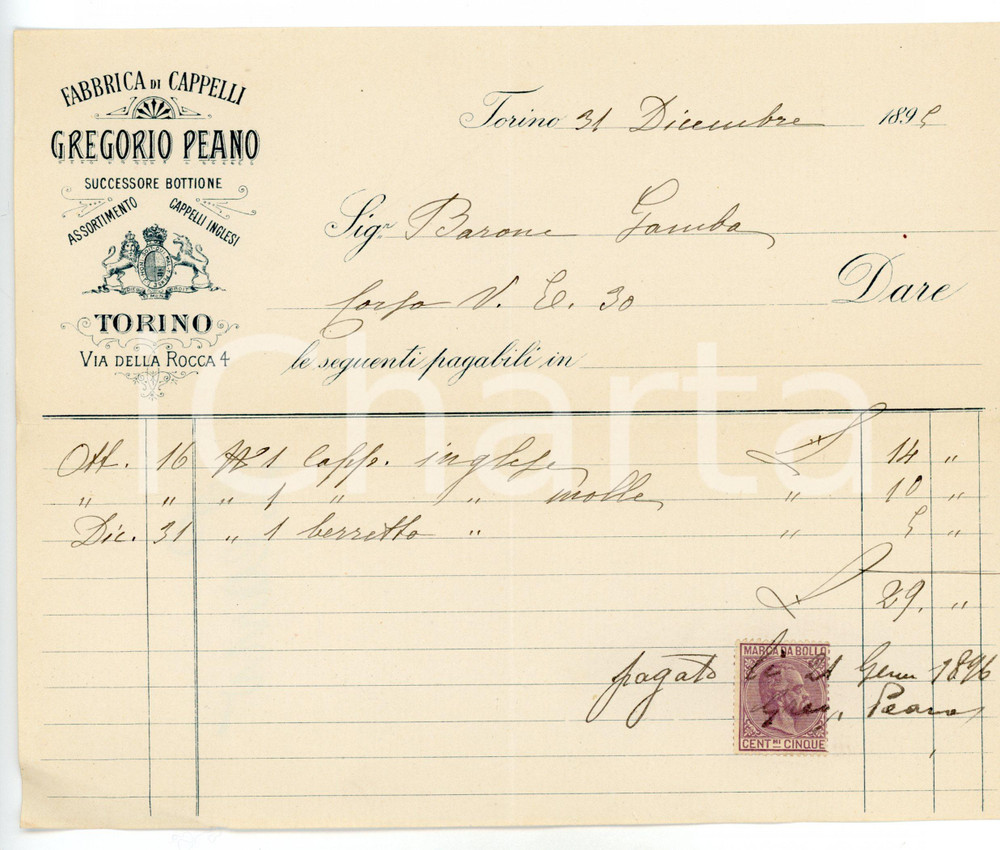 FABBRICA DI CAPPELLI
GREGORIO PEANO
SUCCESSORE BOTTIONE
ASSORTIMENTO CAPPELLI INGLESI
TORINO
VIA DELLA ROCCA 4
Torino 31 Dicembre 1895
Sigr. Barone Gamba
Corso V. E. 30 Dare
le seguenti pagabili in
Ott. 16 No 1 Capp. inglese L 14 "
" " " 1 " " molle " 10 "
Dic. 31 " 1 berretto " " 5 "
L 29. "
MARCA DA BOLLO
pagato li 21 Genn 1896
Greg. Peano
CENT.MI CINQUE
iCharta